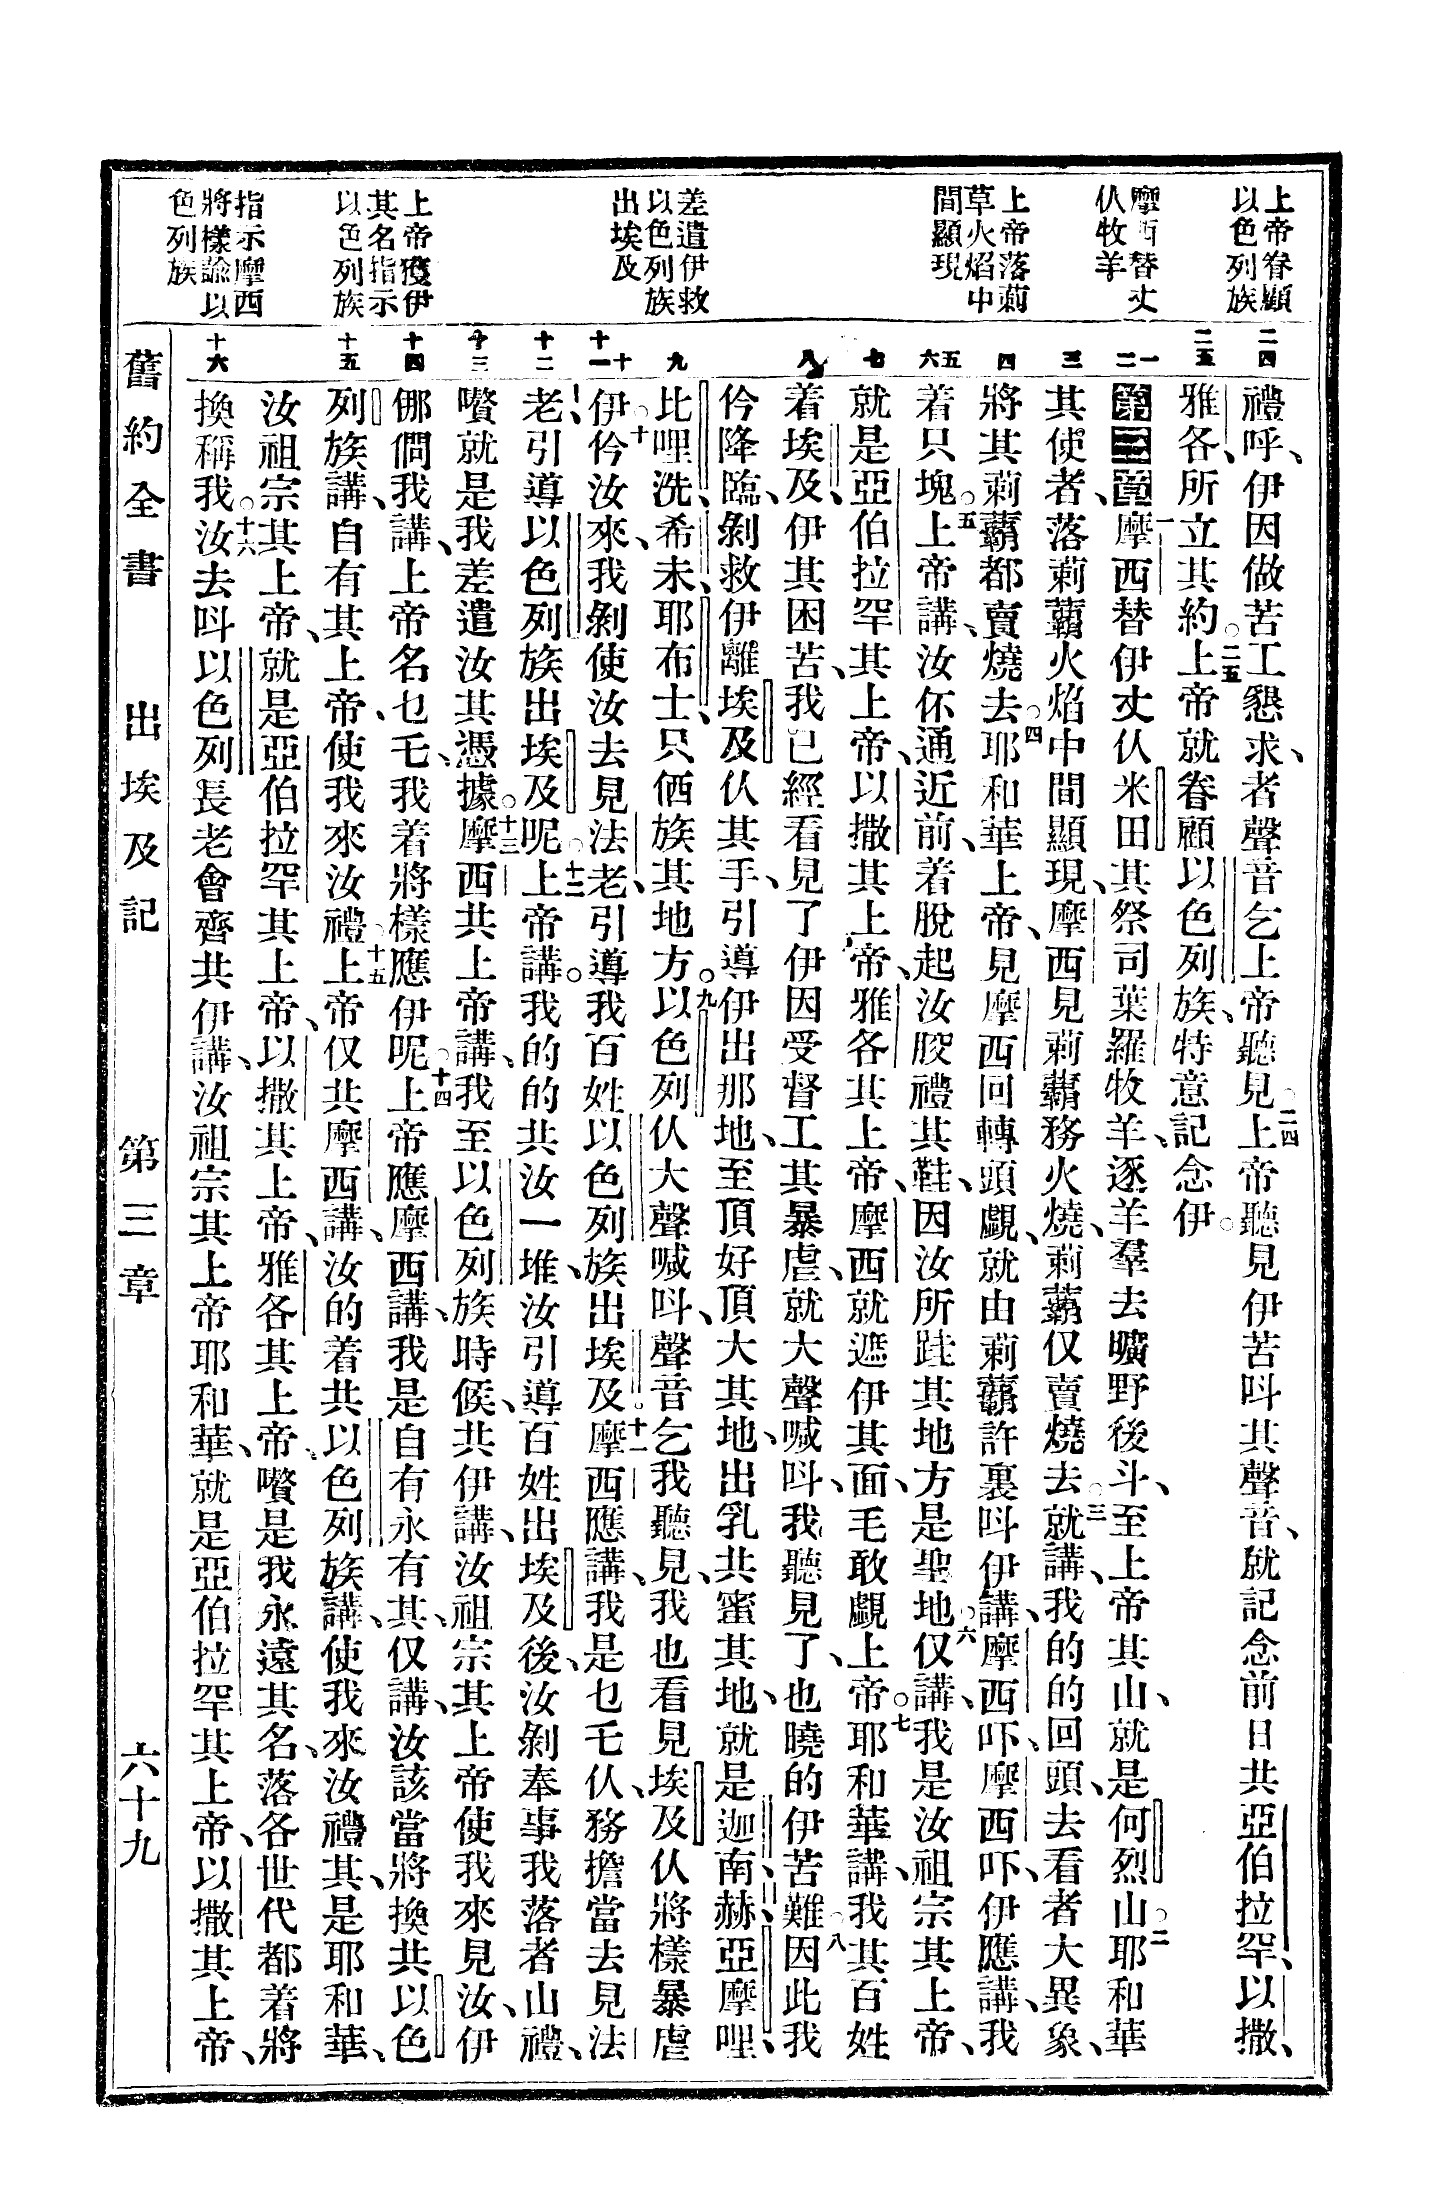 上帝眷顧
以色列族
摩西替丈
仈牧羊
上帝落莿
草火焰中
間顯現
差遣伊救
以色列族
出埃及
上帝獲伊
其名指示
以色列族
指示摩西
將樣諭以
色列族
二四
二五
一
二
三
四
五
六
七
八
九
十
十一
十二
十三
十四
十五
十六
禮呼、伊因做苦工懇求、者聲音乞上帝聽見。二四上帝聽見伊苦呌其聲音、就記念前日共亞伯拉罕、以撒、
雅各、所立其約。二五上帝就眷顧以色列族、特意記念伊。
第三章 一摩西替伊丈仈米田其祭司葉羅牧羊、逐羊羣去曠野後斗、至上帝其山、就是何烈山。二耶和華
其使者、落莿䕳火焰中間顯現、摩西見莿䕳務火燒、莿䕳仅賣燒去。三就講、我的的回頭、去看者大異象、
將其莿䕳都賣燒去。四耶和華上帝、見摩西回轉頭覷、就由莿䕳許裏呌伊講、摩西吓、摩西吓、伊應講、我
着只塊。五上帝講、汝伓通近前、着脫起汝骹禮其鞋、因汝所跬其地方、是聖地。六仅講、我是汝祖宗其上帝、
就是亞伯拉罕其上帝、以撒其上帝、雅各其上帝、摩西就遮伊其面、毛敢覷上帝。七耶和華講、我其百姓
着埃及、伊其困苦、我已經看見了、伊因受督工其暴虐、就大聲喊呌、我聽見了、也曉的伊苦難。八因此我
仱降臨、剝救伊離埃及仈其手、引導伊出那地、至頂好頂大其地、出乳共蜜其地、就是迦南、赫、亞摩哩、
比哩洗、希未、耶布士、只仛族其地方。九以色列仈大聲喊呌、聲音乞我聽見、我也看見埃及仈將樣暴虐
伊。十仱汝來、我剝使汝去見法老、引導我百姓以色列族出埃及。十一摩西應講、我是乜乇仈、務擔當去見法
老、引導以色列族出埃及呢。十二上帝講。我的的共汝一堆、汝引導百姓出埃及後、汝剝奉事我落者山禮、
嚽就是我差遣汝其憑據。十三摩西共上帝講、我至以色列族時候、共伊講、汝祖宗其上帝使我來見汝、伊
倻問我講、上帝名乜乇、我着將樣應伊呢。十四上帝應摩西講、我是自有永有其、仅講、汝該當將換共以色
列族講、自有其上帝、使我來汝禮。十五上帝仅共摩西講、汝的着共以色列族講、使我來汝禮其、是耶和華、
汝祖宗其上帝、就是亞伯拉罕其上帝、以撒其上帝、雅各其上帝、嚽是我永遠其名、落各世代都着將
換稱我。十六汝去呌以色列長老會齊、共伊講、汝祖宗其上帝耶和華、就是亞伯拉罕其上帝、以撒其上帝、
舊約全書 出埃及記 第三章 六十九